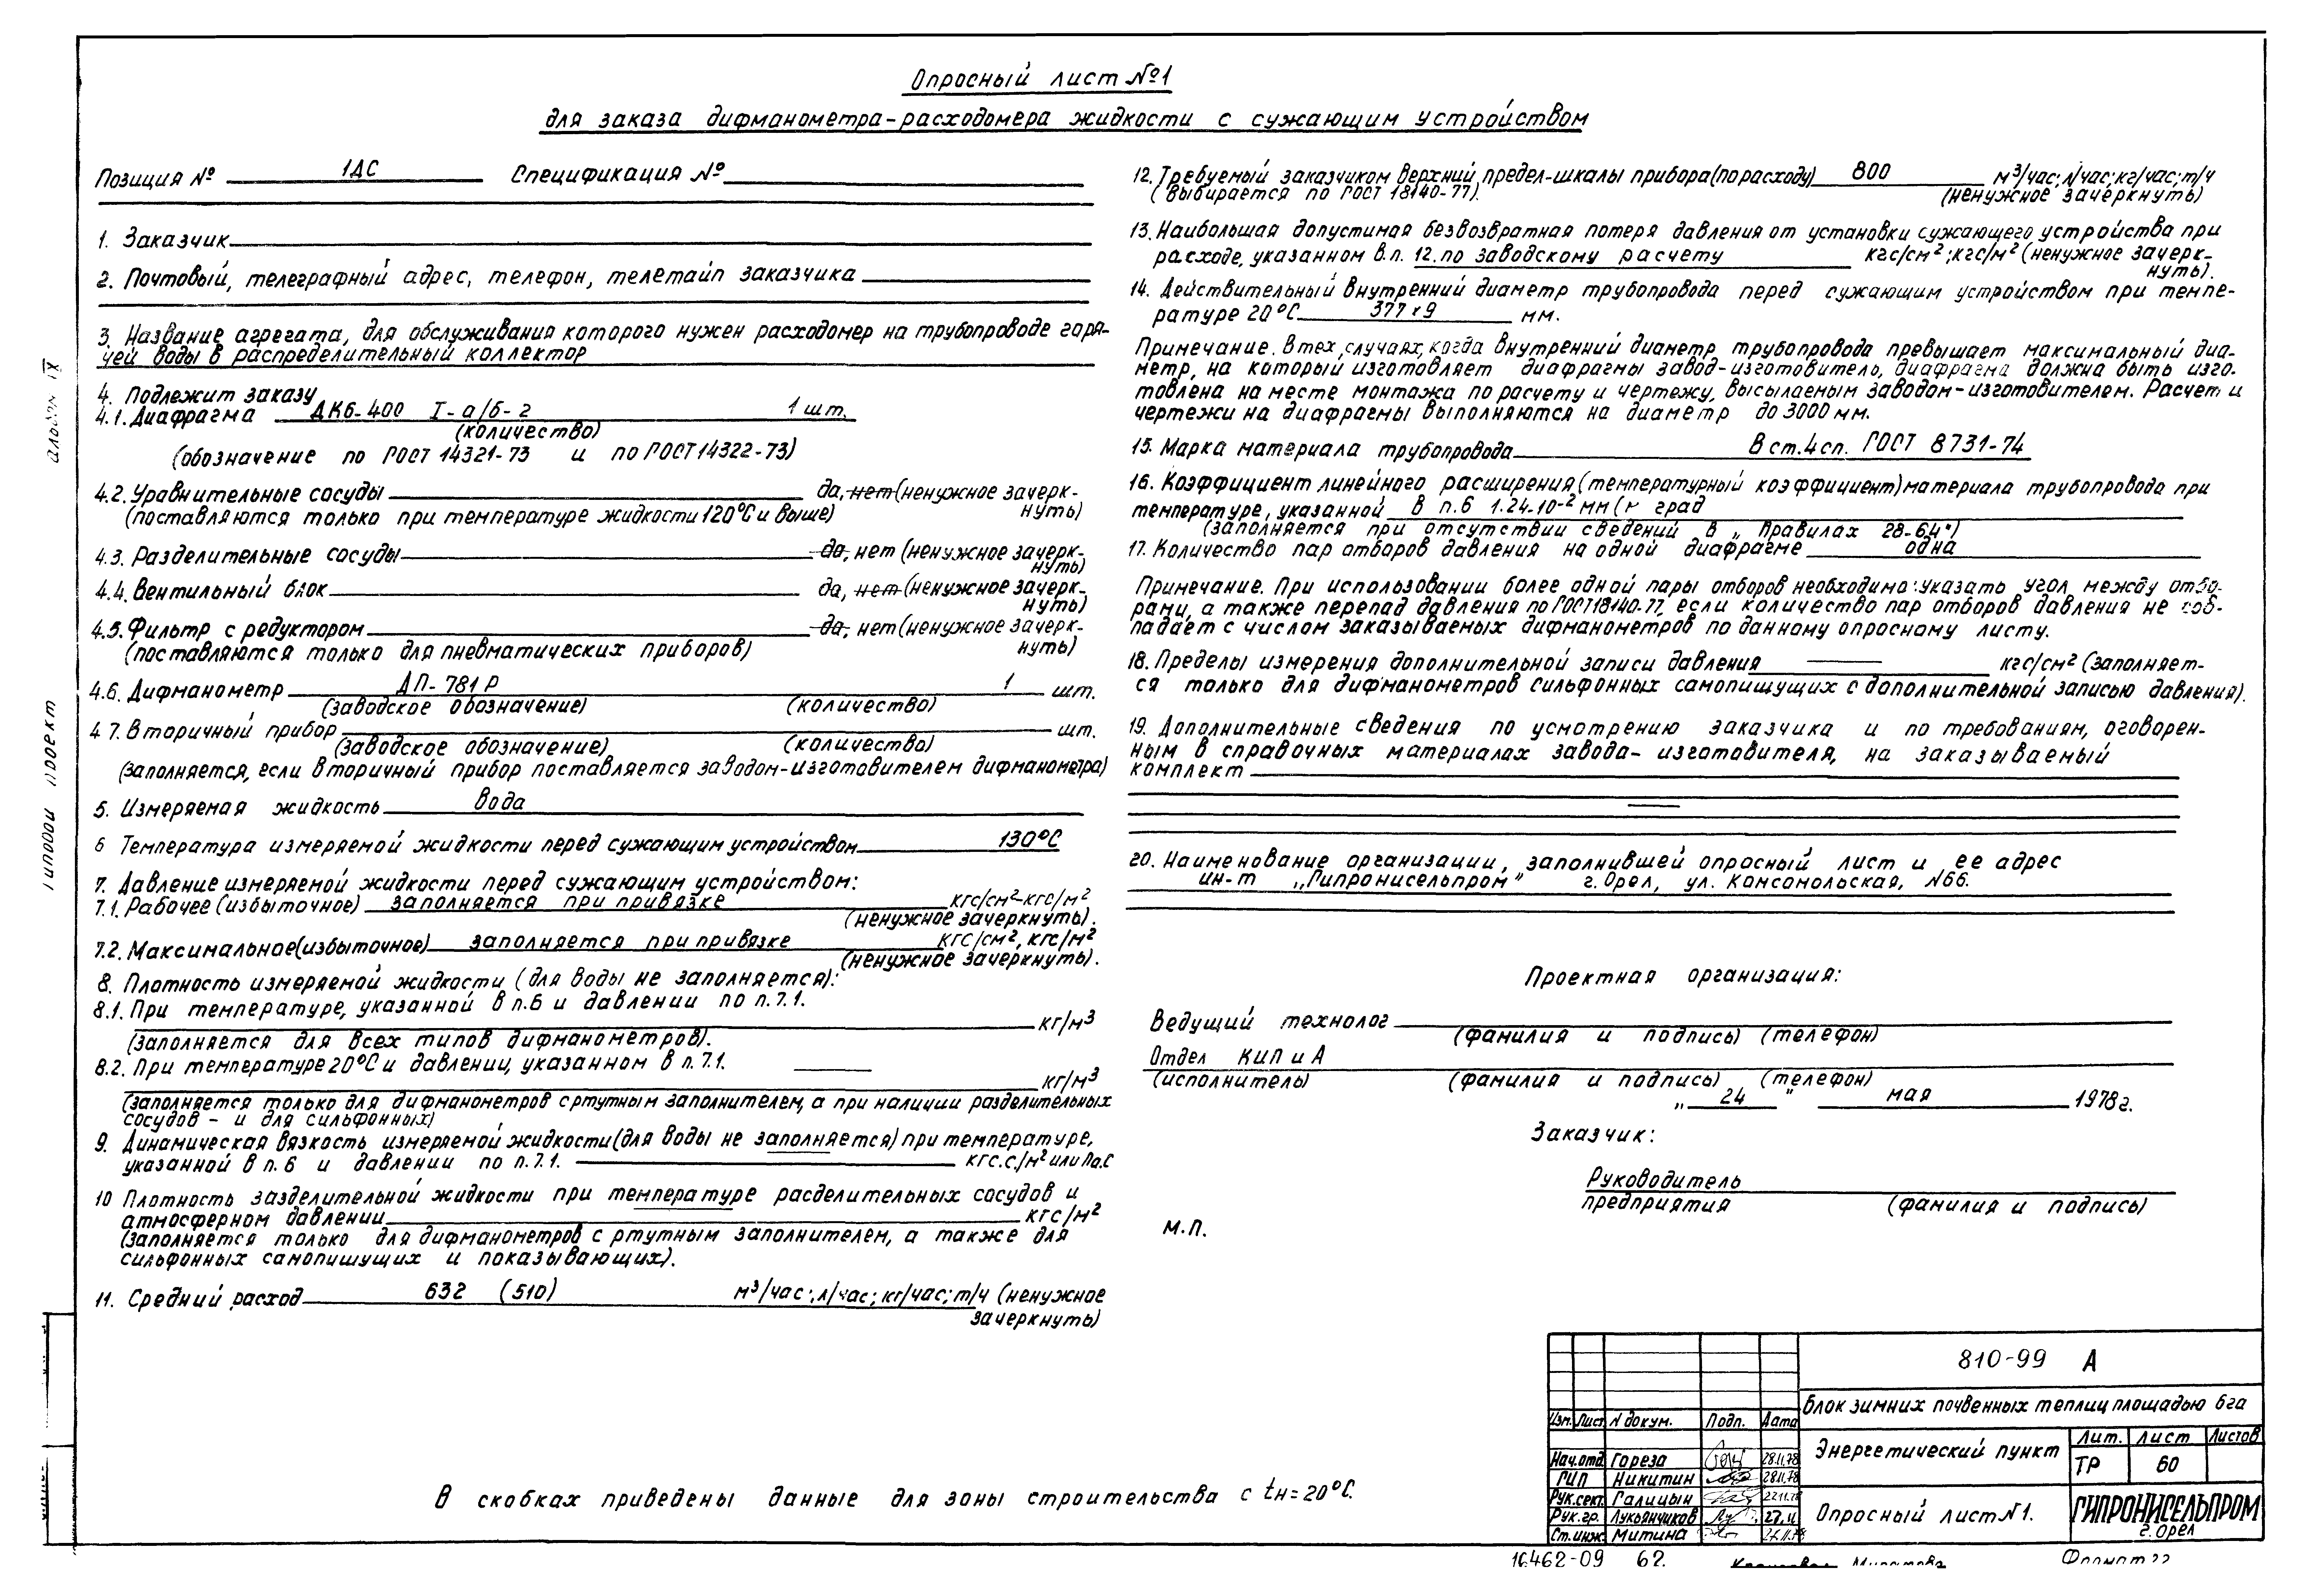 Опросный лист №1
для заказа дифманометра-расходомера жидкости с сужающим устройством
Позиция № 1ДС Спецификация №
1. Заказчик
2. Почтовый, телеграфный адрес, телефон, телетайп заказчика
3. Название агрегата, для обслуживания которого нужен расходомер на трубопроводе горя-
чей воды в распределительный коллектор
4. Подлежит заказу
4.1. Диафрагма ДК6-400 I-а/б-2 1 шт.
(количество)
(обозначение по ГОСТ 14321-73 и по ГОСТ 14322-73)
4.2. Уравнительные сосуды да, нет (ненужное зачерк-
(поставляются только при температуре жидкости 120°С и выше) нуть)
4.3. Разделительные сосуды да, нет (ненужное зачерк-
нуть)
4.4. Вентильный блок да, нет (ненужное зачерк-
нуть)
4.5. Фильтр с редуктором да, нет (ненужное зачерк-
(поставляются только для пневматических приборов) нуть)
4.6. Дифманометр ДП-781Р 1 шт.
(заводское обозначение) (количество)
4 7. Вторичный прибор шт.
(заводское обозначение) (количество)
(заполняется, если вторичный прибор поставляется заводом-изготовителем дифманометра)
5. Измеряемая жидкость вода
6 Температура измеряемой жидкости перед сужающим устройством 130°С
7. Давление измеряемой жидкости перед сужающим устройством:
7.1. Рабочее (избыточное) заполняется при привязке кгс/см²-кгс/м²
(ненужное зачеркнуть).
7.2. Максимальное(избыточное) заполняется при привязке кгс/см², кгс/м²
(ненужное зачеркнуть).
8. Плотность измеряемой жидкости (для воды не заполняется):
8.1. При температуре, указанной в п.6 и давлении по п.7.1.
кг/м³
(заполняется для всех типов дифманометров).
8.2. При температуре 20°С и давлении, указанном в п.7.1.
кг/м³
(заполняется только для дифманометров с ртутным заполнителем, а при наличии разделительных
сосудов - и для сильфонных)
9. Динамическая вязкость измеряемой жидкости (для воды не заполняется) при температуре,
указанной в п.6 и давлении по п.7.1. кгс.с./м² или Па.С
10 Плотность зазделительной жидкости при температуре расделительных сосудов и
атмосферном давлении кгс/м²
(заполняется только для дифманометров с ртутным заполнителем, а также для
сильфонных самопишущих и показывающих).
11. Средний расход 632 (510) м³/час; л/час; кг/час; т/ч (ненужное
зачеркнуть)
12. Требуемый заказчиком верхний предел-шкалы прибора (по расходу) 800 м³/час; л/час; кг/час; т/ч
(выбирается по ГОСТ 18140-77). (ненужное зачеркнуть)
13. Наибольшая допустимая безвозвратная потеря давления от установки сужающего устройства при
расходе, указанном в.п. 12. по заводскому расчету кгс/см²; кгс/м² (ненужное зачерк-
нуть).
14. Действительный внутренний диаметр трубопровода перед сужающим устройством при темпе-
ратуре 20°С 377х9 мм.
Примечание. В тех, случаях, когда внутренний диаметр трубопровода превышает максимальный диа-
метр, на который изготовляет диафрагмы завод-изготовитель, диафрагма должна быть изго-
товлена на месте монтажа по расчету и чертежу, высылаемым заводом-изготовителем. Расчет и
чертежи на диафрагмы выполняются на диаметр до 3000 мм.
15. Марка материала трубопровода В ст.4сп. ГОСТ 8731-74
16. Коэффициент линейного расширения (температурный коэффициент) материала трубопровода при
температуре, указанной в п.6 1.24.10-² мм (м град
(заполняется при отсутствии сведений в „Правилах 28-64")
17. Количество пар отборов давления на одной диафрагме одна
Примечание. При использовании более одной пары отборов необходимо: указать угол между отбо-
рами, а также перепад давления по ГОСТ 18140-77, если количество пар отборов давления не сов-
падает с числом заказываемых дифманометров по данному опросному листу.
18. Пределы измерения дополнительной записи давления кгс/см² (заполняет-
ся только для дифманометров сильфонных самопишущих с дополнительной записью давления).
19. Дополнительные сведения по усмотрению заказчика и по требованиям, оговорен-
ным в справочных материалах завода-изготовителя, на заказываемый
комплект
20. Наименование организации, заполнившей опросный лист и ее адрес
ин-т „Гипронисельпром" г. Орел, ул. Комсомольская, №66.
Проектная организация:
Ведущий технолог
(фамилия и подпись) (телефон)
Отдел КИП и А
(исполнитель) (фамилия и подпись) (телефон)
„ 24 " мая 1978 г.
Заказчик:
Руководитель
предприятия (фамилия и подпись)
м.п.
В скобках приведены данные для зоны строительства с tн=20°С.
Альбом IX
Типовой проект
810-99 А
Блок зимних почвенных теплиц площадью 6га
Изм. Лист N докум. Подп. Дата
Энергетический пункт
Лит. Лист Листов
ТР 60
Нач.отд. Гореза 28.11.78
ГИП Никитин 28.11.78
Рук.сект. Галицын 22.11.78
Рук.гр. Лукьянчиков 27.11
Ст.инж. Митина
Опросный лист №1.
ГИПРОНИСЕЛЬПРОМ
г. Орел
16462-09 62.
Формат 22